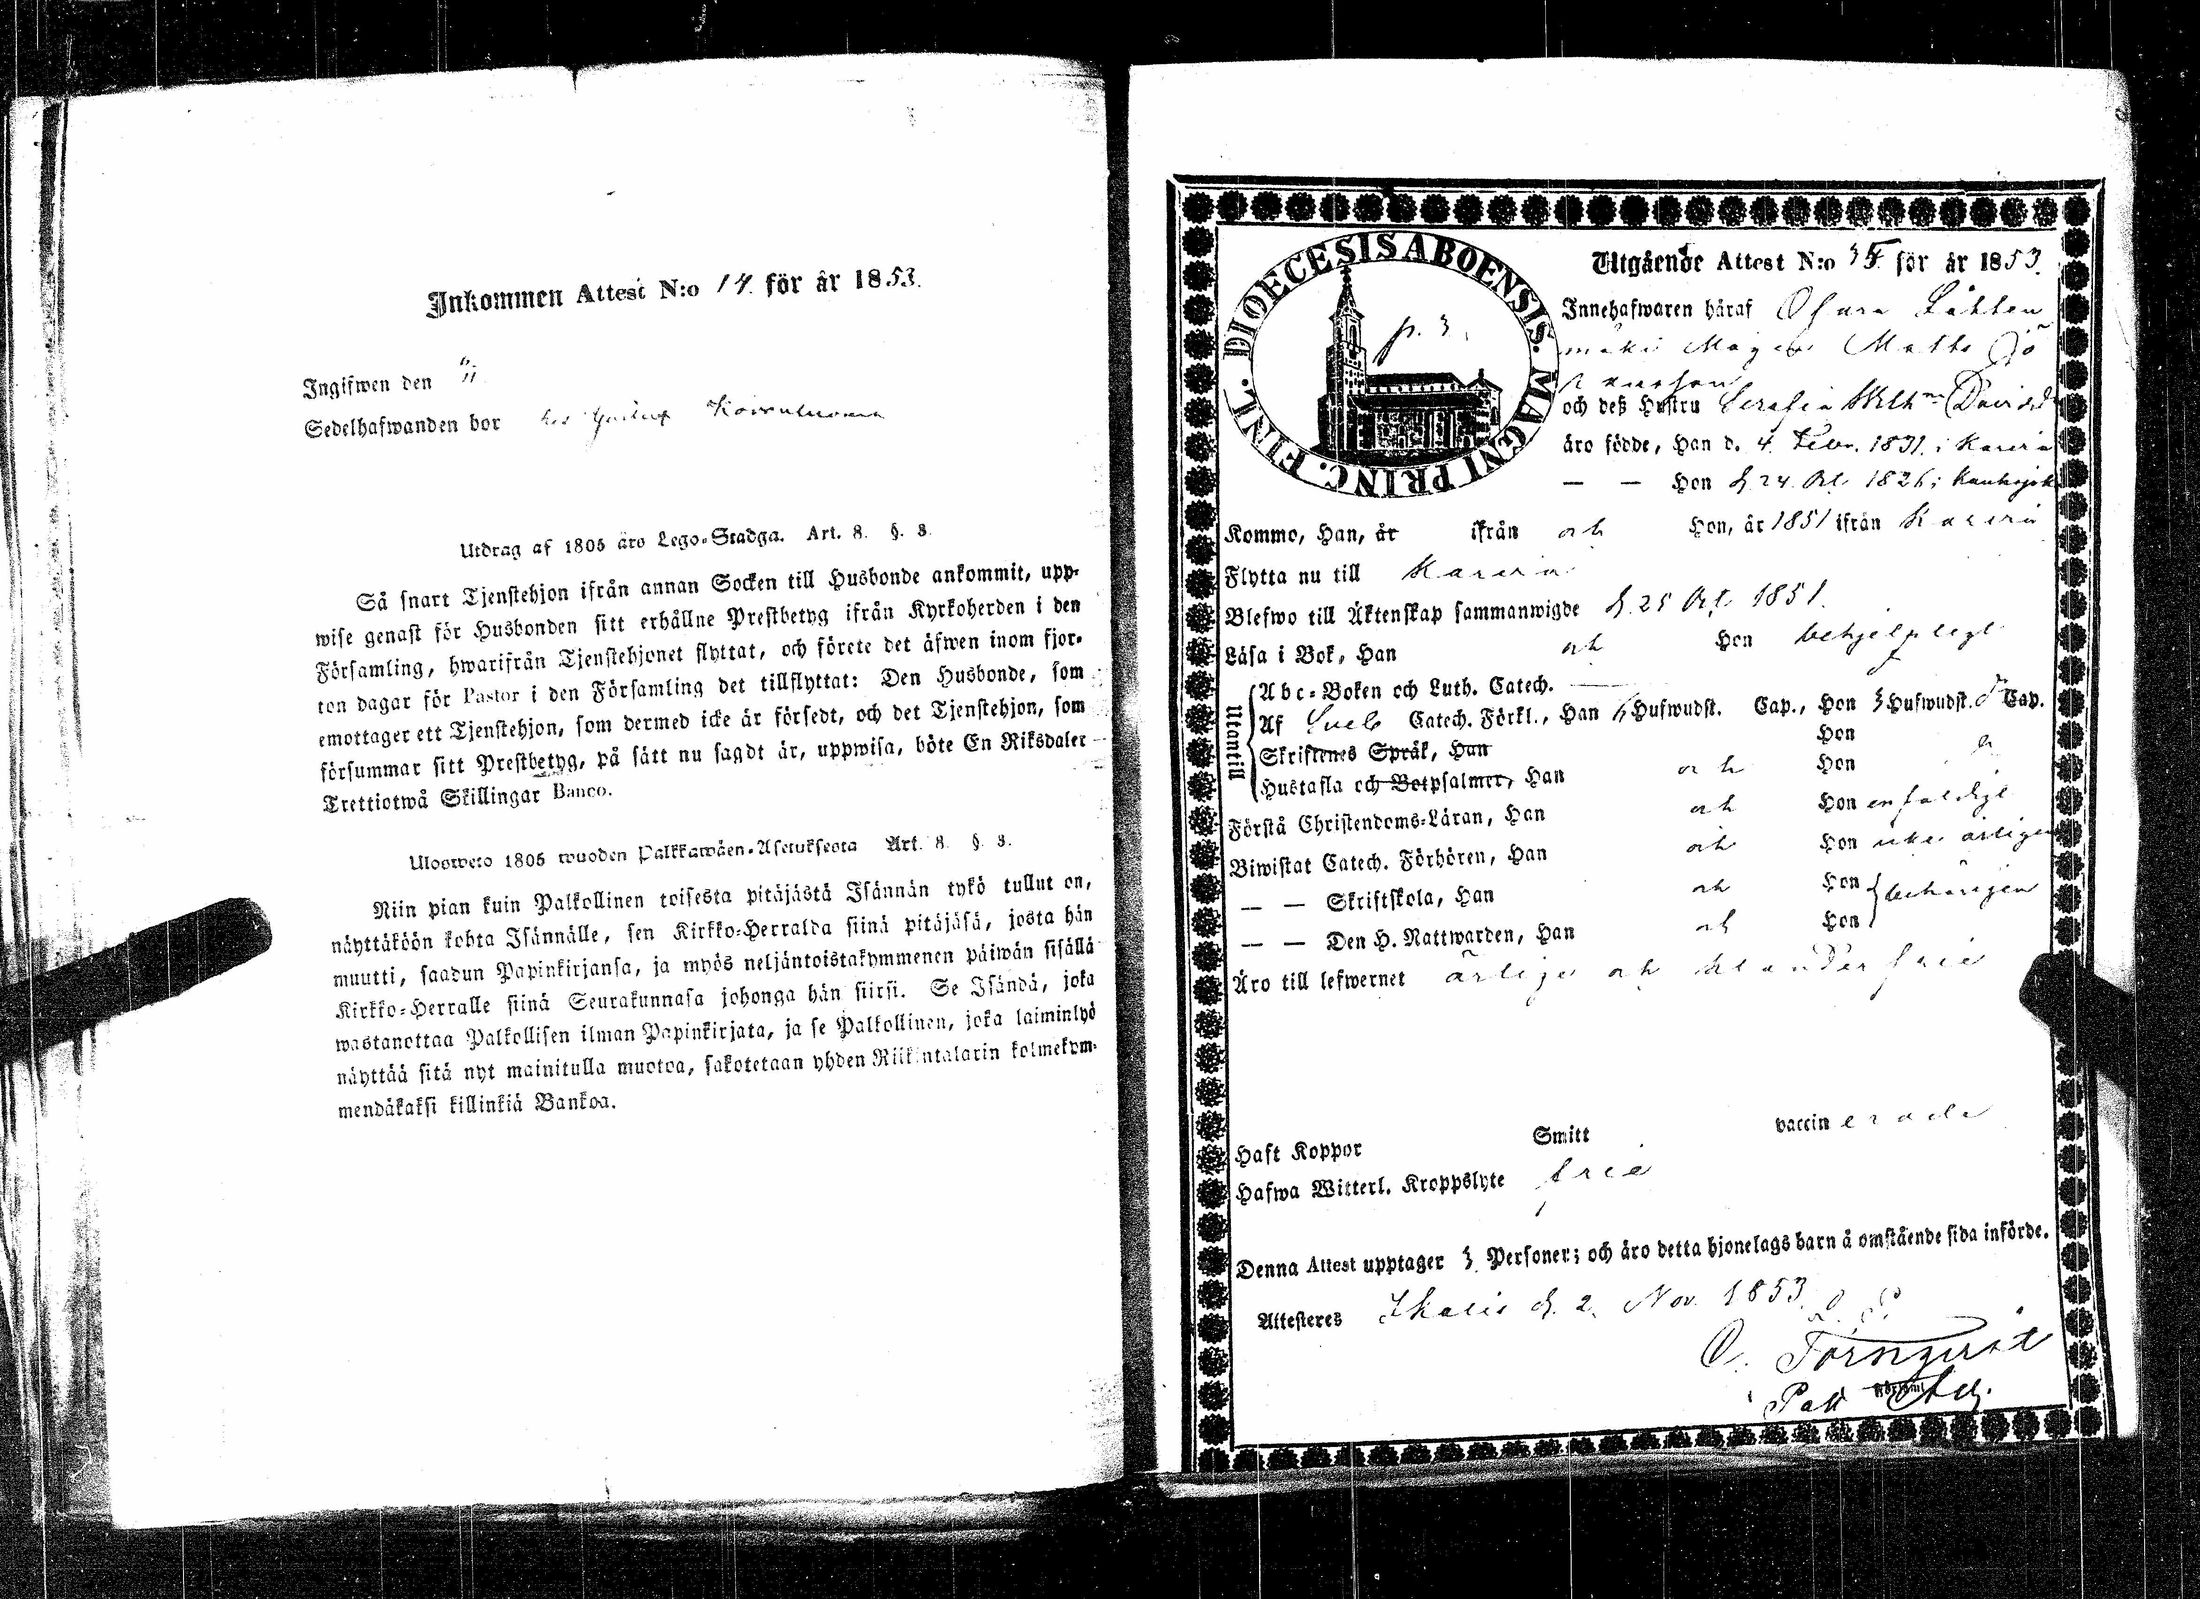 Inkommen Attest N:o 14. för år 1853.
Ingifwen den
Sedelhafwanden bor hos
Utdrag af 1805 års Lego-Stadga. Art. 8. §. 3.
Så snart Tjenstehjon ifrån annan Socken till Husbonde ankommit, upp-
wise genast för Husbonden sitt erhållne Prestbetyg ifrån Kyrkoherden i den
Församling, hwarifrån Tjenstehjonet flyttat, och förete det äfwen inom fjor-
ton dagar för Pastor i den Församling det tillflyttat: Den Husbonde, som
emottager ett Tjenstehjon, som dermed icke är försedt, och det Tjenstehjon, som
försummar sitt Prestbetyg, på sätt nu sagdt är, uppwisa, böte En Riksdaler
Trettiotwå Skillingar Banco.
Ulosweto 1805 wuoden Palkkawäen-Asetuksesta Art. 8. §. 3.
Niin pian kuin Palkollinen toisesta pitäjästä Isännän tykö tullut on,
näyttäköön kohta Isännälle, sen Kirkko-Herralda siinä pitäjäsä, josta hän
muutti, saadun Papinkirjansa, ja myös neljäntoistakymmenen päiwän sisällä
Kirkko-Herralle siinä Seurakunnasa johonga hän siirsi. Se Isändä, joka
wastanottaa Palkollisen ilman Papinkirjata, ja se Palkollinen, joka laiminlyö
näyttää sitä nyt mainitulla muotoa, sakotetaan yhden Riikintalarin kolmekym-
mendäkaksi killinkiä Bankoa.
DIOECESIS ABOENSIS. MAGNI PRINC. FINL.
p. 3.
Utgående Attest N:o för år 1853.
Innehafwaren häraf Ofvan
Mågen Matts
och deß Hustru Serafia Wilh:na Davidsd
äro födde, Han d. 4. Febr. 1831. i
— — Hon d. 24. Oct. 1826 i
Kommo, Han, år ifrån och Hon, år 1851 ifrån
Flytta nu till
Blefwo till Äktenskap sammanwigde d. 25 Oct. 1851.
Läsa i Bok, Han och Hon behjelpligt
Utantill
Abc-Boken och Luth. Catech.
Af Sveb Catech. Förkl., Han Hufwudst. Cap., Hon 3 Hufwudst. Cap.
Skriftenes Språk, Han Hon
Hustafla och Botpsalmer, Han och Hon
Förstå Christendoms-Läran, Han och Hon enfaldigt
Biwistat Catech. Förhören, Han och Hon icke årligen
— — Skriftskola, Han och Hon behörigen
— — Den H. Nattwarden, Han och Hon
Äro till lefwernet ärlige och klanderfrie
Haft Koppor Smitt vaccinerade
Hafwa Witterl. Kroppslyte frie
Denna Attest upptager 3 Personer; och äro detta hjonelags barn å omstående sida införde.
Attesteres Ikalis d. 2. Nov. 1853.
O. Törnqvist
Past Adj.